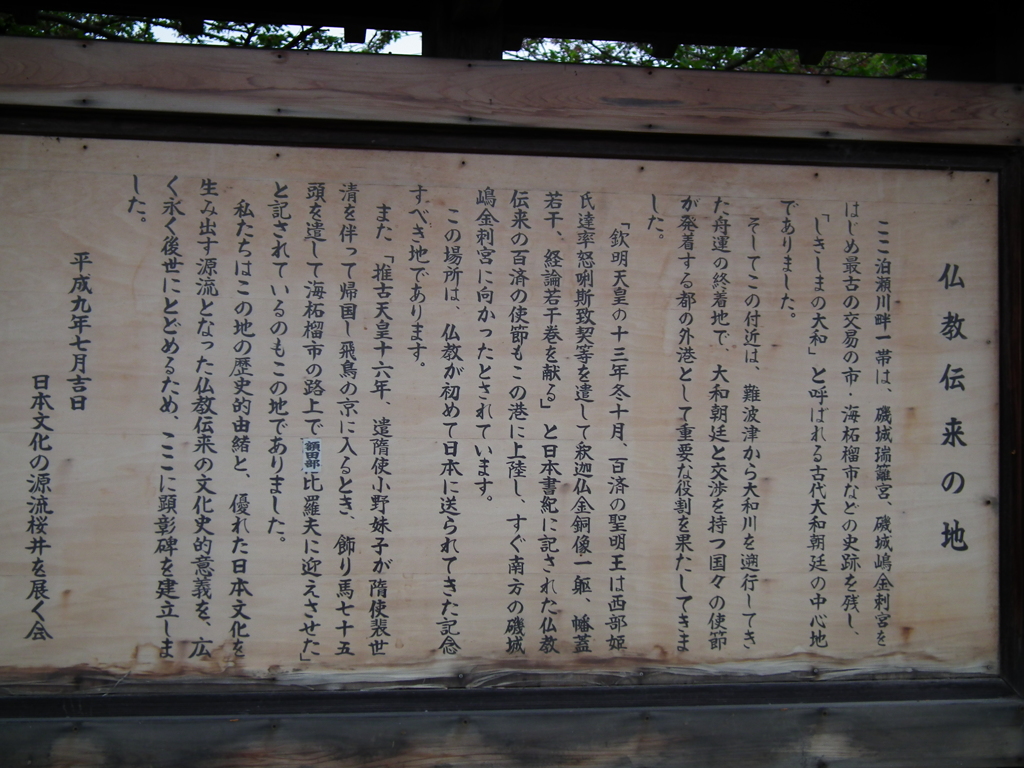 仏教伝来の地
ここ泊瀬川畔一帯は、磯城瑞籬宮、磯城嶋金刺宮を
はじめ最古の交易の市・海柘榴市などの史跡を残し、
「しきしまの大和」と呼ばれる古代大和朝廷の中心地
でありました。
そしてこの付近は、難波津から大和川を遡行してき
た舟運の終着地で、大和朝廷と交渉を持つ国々の使節
が発着する都の外港として重要な役割を果たしてきま
した。
「欽明天皇の十三年冬十月、百済の聖明王は西部姫
氏達率怒唎斯致契等を遣して釈迦仏金銅像一躯、幡蓋
若干、経論若干巻を献る」と日本書紀に記された仏教
伝来の百済の使節もこの港に上陸し、すぐ南方の磯城
嶋金刺宮に向かったとされています。
この場所は、仏教が初めて日本に送られてきた記念
すべき地であります。
また「推古天皇十六年、遣隋使小野妹子が隋使裴世
清を伴って帰国し飛鳥の京に入るとき、飾り馬七十五
頭を遣して海柘榴市の路上で額田部比羅夫に迎えさせた」
と記されているのもこの地でありました。
私たちはこの地の歴史的由緒と、優れた日本文化を
生み出す源流となった仏教伝来の文化史的意義を、広
く永く後世にとどめるため、ここに顕彰碑を建立しま
した。
平成九年七月吉日
日本文化の源流桜井を展く会